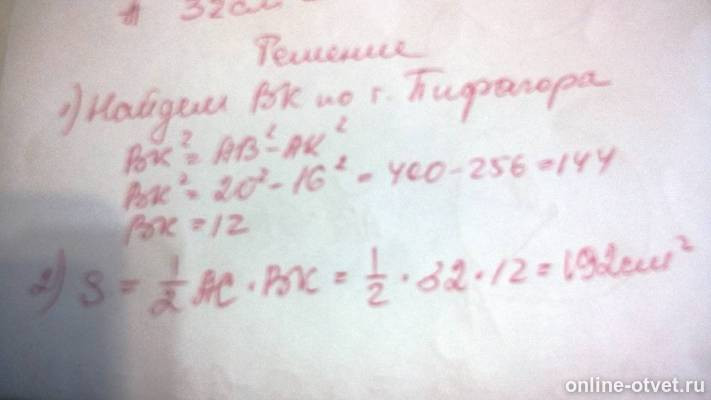 A 32см
Решение
1) Найдем ВК по т. Пифагора
ВК² = АВ² - АК²
ВК² = 20² - 16² = 400 - 256 = 144
ВК = 12
2) S = 1/2 АС · ВК = 1/2 · 32 · 12 = 192см²
online-otvet.ru